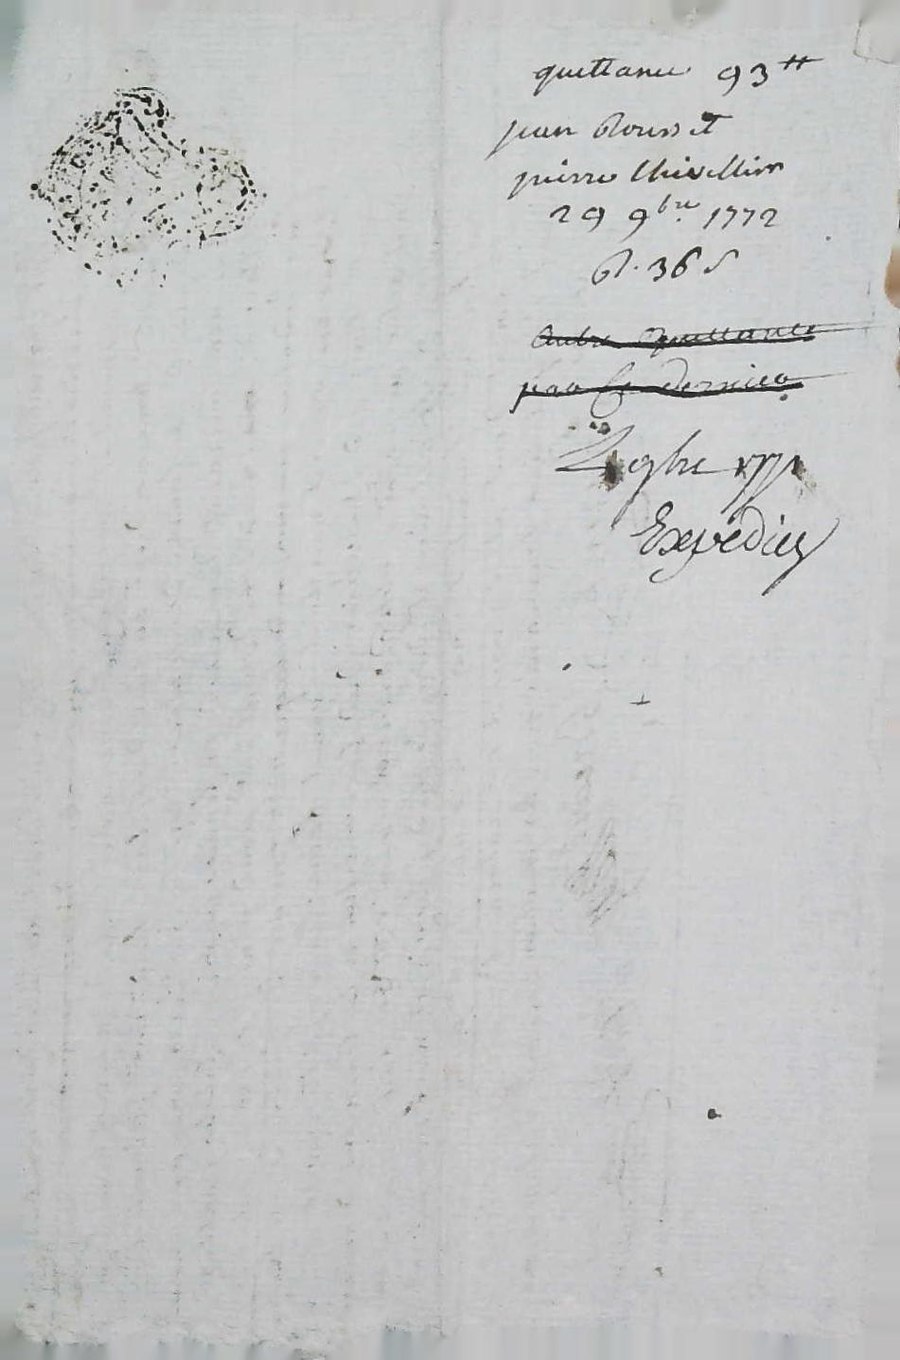 quittance 93 ₶
jean Rousset
pierre Chivellim
29 9bre. 1772
R. 36 s
Autre Quittance
par le dernier
9bre
Expédiez